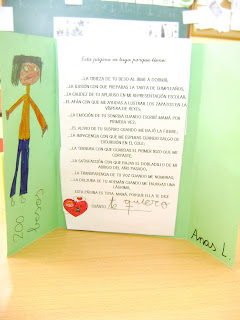 Esta página es tuya porque tiene:
...LA TIBIEZA DE TU BESO AL IRME A DORMIR,
...LA ILUSIÓN CON QUE PREPARAS LA TARTA DE CUMPLEAÑOS,
...LA CALIDEZ DE TU APLAUSO EN MI REPRESENTACIÓN ESCOLAR,
...EL AFÁN CON QUE ME AYUDAS A LUSTRAR LOS ZAPATOS EN LA
VÍSPERA DE REYES,
...LA EMOCIÓN DE TU SONRISA CUANDO ESCRIBÍ MAMÁ, POR
PRIMERA VEZ,
...EL ALIVIO DE TU SUSPIRO CUANDO ME BAJÓ LA FIEBRE,
...LA IMPACIENCIA CON QUE ME ESPERAS CUANDO SALGO DE
EXCURSIÓN EN EL COLE,
...LA TERNURA CON QUE GUARDAS EL PRIMER RIZO QUE ME
CORTASTE,
...LA SATISFACCIÓN CON QUE BAJAS EL DOBLADILLO DE MI
ABRIGO DEL AÑO PASADO,
...LA TRANSPARENCIA DE TU VOZ CUANDO ME NOMBRAS,
...LA DULZURA DE TU ADEMÁN CUANDO ME ENJUGAS UNA
LÁGRIMA,
...ESTA PÁGINA ES TUYA, MAMÁ, PORQUE ELLA TE DICE
CUÁNTO te quiero
200
besos
Anas L.